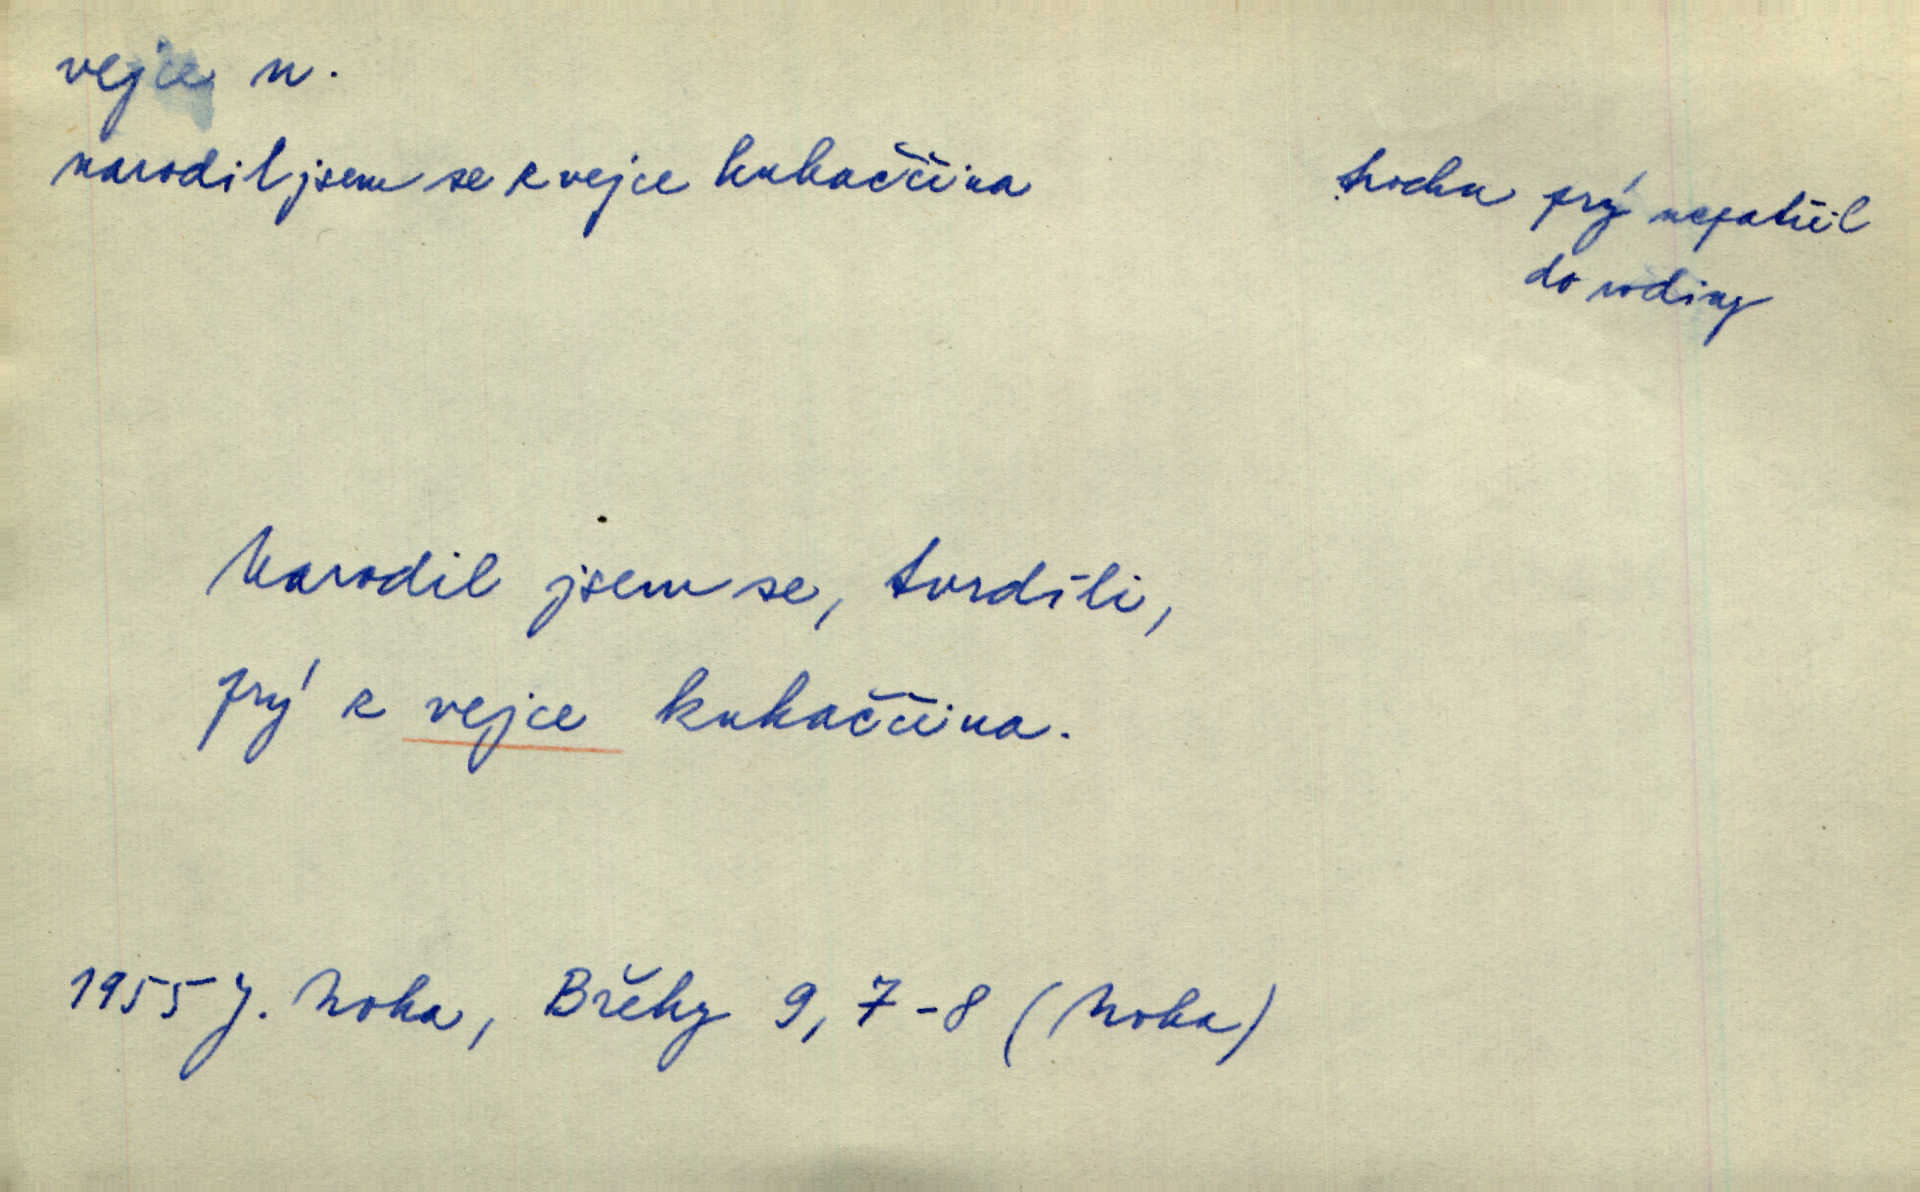 vejce n.
narodil jsem se z vejce kukaččina
trochu prý nepatřil
do rodiny
Narodil jsem se, tvrdili,
prý z vejce kukaččina.
1955 J. Noha, Břehy 9, 7-8 (Noha)